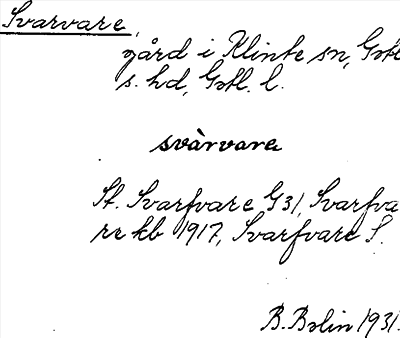 Svarvare,
gård i Klinte sn, Gotl.
s. hd, Gotl. l.
svàrvara
St. Svarfvare G31, Svarfva
re kb 1917, Svarfvare S.
B. Bolin 1931.